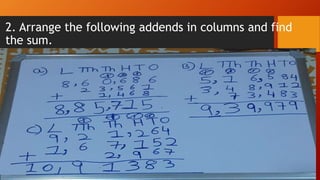 2. Arrange the following addends in columns and find
the sum.
a) L TTh Th H T O
8,60,686
23,561
+ 1,468
8,85,715
B) L TTh Th H T O
5,16,584
3,48,912
+ 73,483
9,39,979
c) L TTh Th H T O
9,21,264
1,67,152
+ 2,967
10,91383